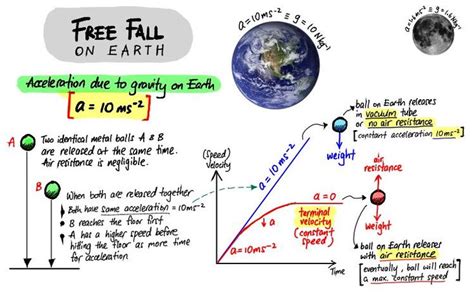 FREE FALL
ON EARTH
a=10ms⁻² ≡ g=10Nkg⁻¹
a=1.6ms⁻² ≡ g=1.6Nkg⁻¹
Acceleration due to gravity on Earth
[a = 10 ms⁻²]
A
Two identical metal balls A & B
are released at the same time.
Air resistance is negligible.
B
When both are released together
Both have same acceleration = 10ms⁻²
B reaches the floor first
A has a higher speed before
hitting the floor as more time
for acceleration
(Speed)
Velocity
a = 10 ms⁻²
ball on Earth releases
in vacuum tube
or no air resistance
[constant acceleration 10ms⁻²]
weight
air
resistance
a=0
terminal
velocity
(constant
speed)
a=10ms⁻²
weight
Time
ball on Earth releases
with air resistance
[eventually, ball will reach
a max. constant speed]